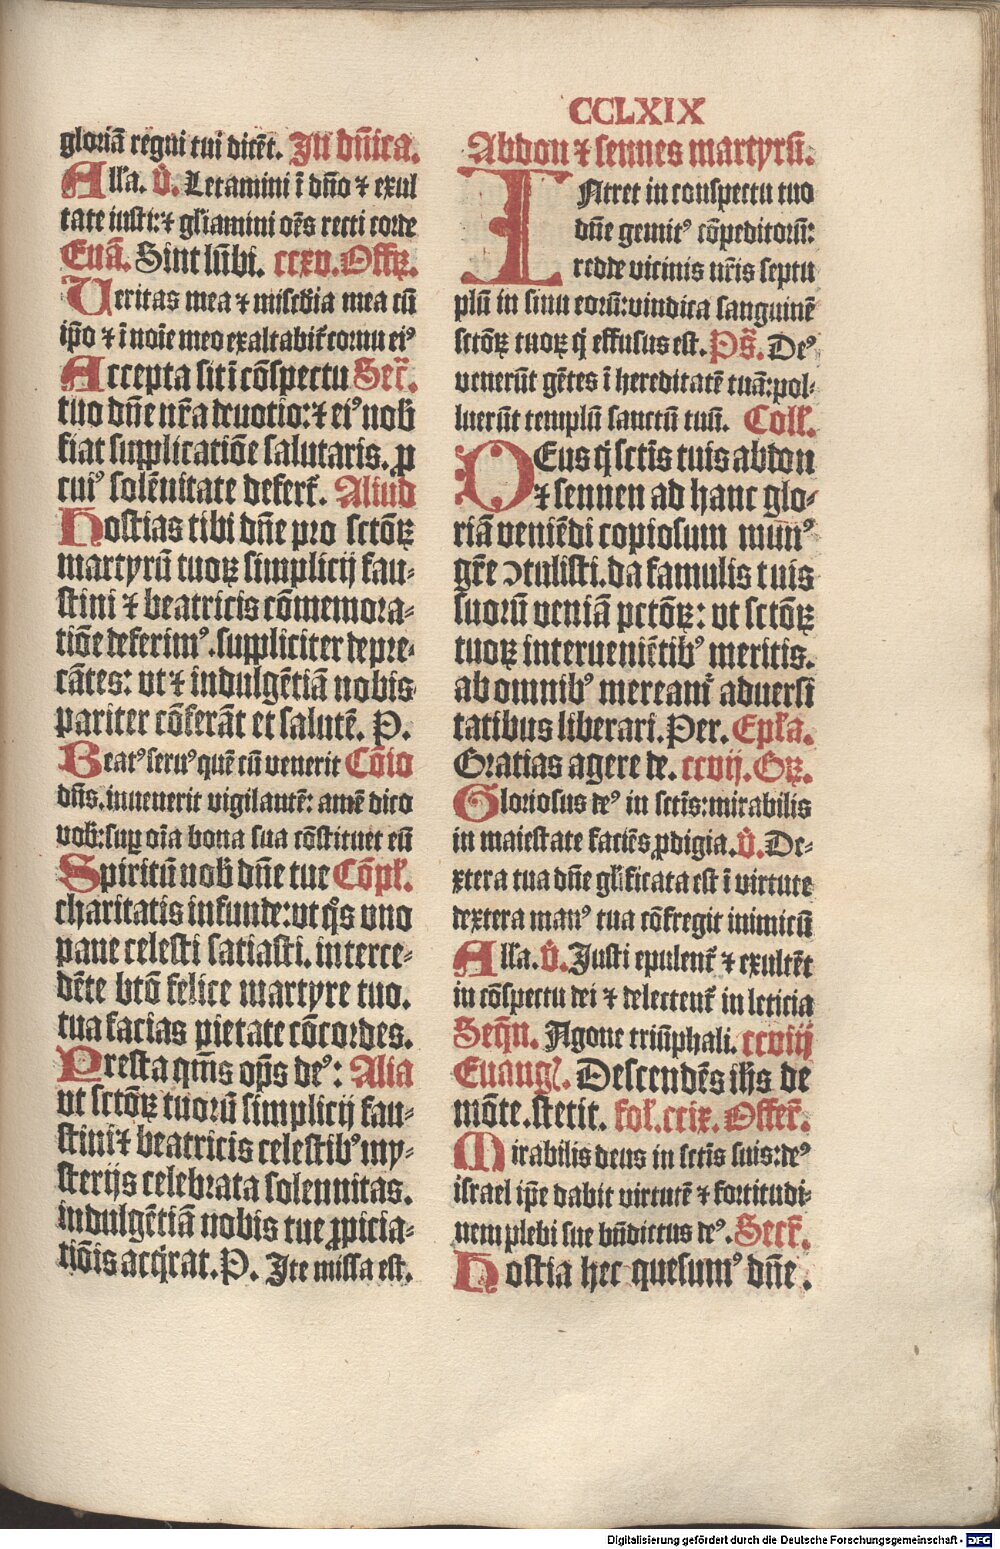 CCLXIX
gloriā regni tui dicēt. In dn̄ica.
Alła. v̊. Letamini ī dn̄o ⁊ exul
tate iusti:⁊ gl̄iamini oēs recti corde
Euā. Sint lūbi. ccxv. Offꝝ.
Ueritas mea ⁊ misc̄dia mea cū
ip̄o ⁊ ī noīe meo exaltabit̄ cornu eiꝰ
Accepta sit ī cōspectu Secr̄.
tuo dn̄e nr̄a deuotio:⁊ eiꝰ nob̄
fiat supplicatiōe salutaris. ꝑ
cuiꝰ solēnitate defert̄. Aliud
Hostias tibi dn̄e pro sctōꝝ
martyrū tuoꝝ simplicij fau⸗
stini ⁊ beatricis cōmemora⸗
tiōe deferimꝰ.suppliciter depre⸗
cātes: vt ⁊ indulgētiā nobis
pariter cōferāt et salutē. P.
Beatꝰ seruꝰ quē cū venerit Cōio
dn̄s.inuenerit vigilantē: amē dico
vob̄:suꝑ oīa bona sua cōstituet eū
Spiritū nob̄ dn̄e tue Cōpł.
charitatis infunde:vt q̄s vno
pane celesti satiasti. interce⸗
dēte btō felice martyre tuo.
tua facias pietate cōcordes.
Presta qm̄s op̄s deꝰ: Alia
vt sctōꝝ tuorū simplicij fau⸗
stini ⁊ beatricis celestibꝰ my⸗
sterijs celebrata solennitas.
indulgētiā nobis tue ꝓpicia⸗
tiōis acq̄rat. P. Ite missa est.
Abdon ⁊ sennes martyrū.
INtret in conspectu tuo
dn̄e gemitꝰ cōpeditorū:
redde vicinis nr̄is septu
plū in sinu eorū:vindica sanguinē
sctōꝝ tuoꝝ q̄ effusus est. Ps̄. Deꝰ
venerūt gētes ī hereditatē tuā:pol⸗
luerūt templū sanctū tuū. Coll̄.
DEus q̄ sctīs tuis abdon
⁊ sennen ad hanc glo⸗
riā veniēdi copiosum munꝰ
gr̄e ↄtulisti.da famulis tuis
suorū veniā pctōꝝ: vt sctōꝝ
tuoꝝ interuenietībꝰ meritis.
ab omnibꝰ mereant̄ aduersi
tatibus liberari. Per. Epła.
Gratias agere de. ccvij. Gꝝ.
Gloriosus deꝰ in sctīs:mirabilis
in maiestate faciēs ꝓdigia. v̊. De⸗
xtera tua dn̄e gl̄ificata est ī virtute
dextera manꝰ tua cōfregit inimicū
Alła. v̊. Justi epulent̄ ⁊ exultēt
in cōspectu dei ⁊ delectent̄ in leticia
Seq̄n. Agone triūphali. ccviij
Euang̃. Descendēs ihs de
mōte.stetit. fol̄.ccix. Offer̄.
Mirabilis deus in sctīs suis:deꝰ
israel ip̄e dabit virtutē ⁊ fortitudi⸗
nem plebi sue bn̄dictus deꝰ. Secr̄.
Hostia hec quesumꝰ dn̄e.
Digitalisierung gefördert durch die Deutsche Forschungsgemeinschaft - DFG